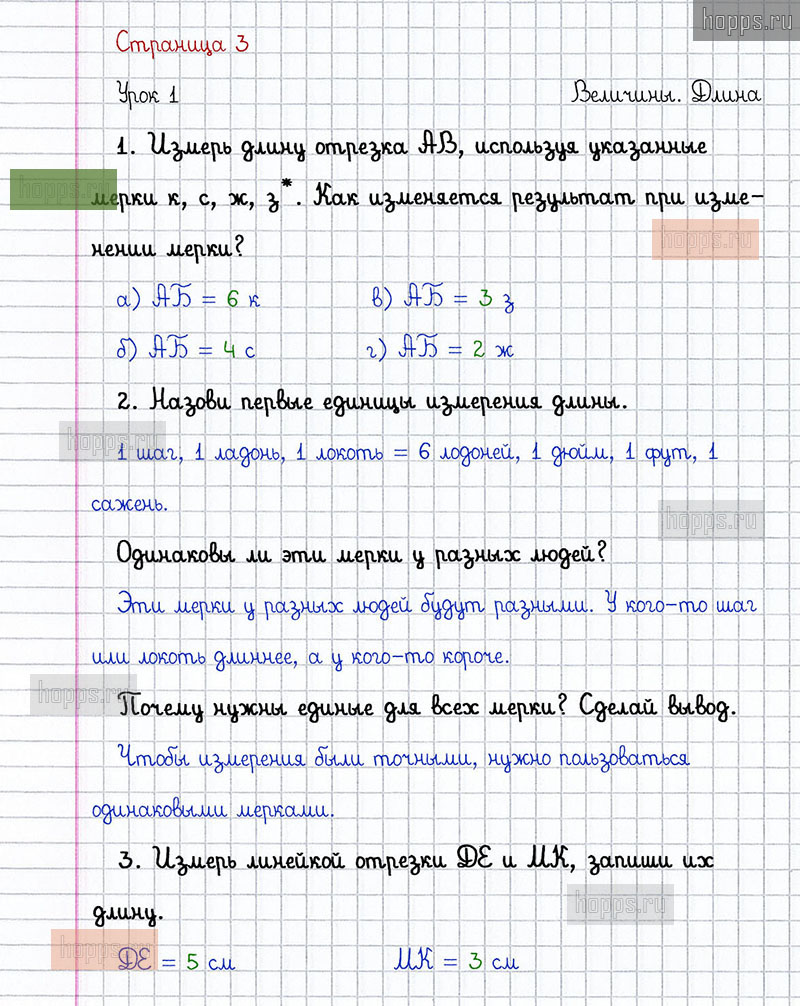 hopps.ru
Страница 3
Урок 1 Величины. Длина
1. Измерь длину отрезка АВ, используя указанные
hopps.ru
мерки к, с, ж, з*. Как изменяется результат при изме-
hopps.ru
нении мерки?
а) АБ = 6 к в) АБ = 3 з
б) АБ = 4 с г) АБ = 2 ж
2. Назови первые единицы измерения длины.
hopps.ru
1 шаг, 1 ладонь, 1 локоть = 6 лодоней, 1 дюйм, 1 фут, 1
сажень.
hopps.ru
Одинаковы ли эти мерки у разных людей?
Эти мерки у разных людей будут разными. У кого-то шаг
или локоть длиннее, а у кого-то короче.
hopps.ru
Почему нужны единые для всех мерки? Сделай вывод.
Чтобы измерения были точными, нужно пользоваться
одинаковыми мерками.
3. Измерь линейкой отрезки DE и МК, запиши их
hopps.ru
длину.
hopps.ru
DE = 5 см МК = 3 см